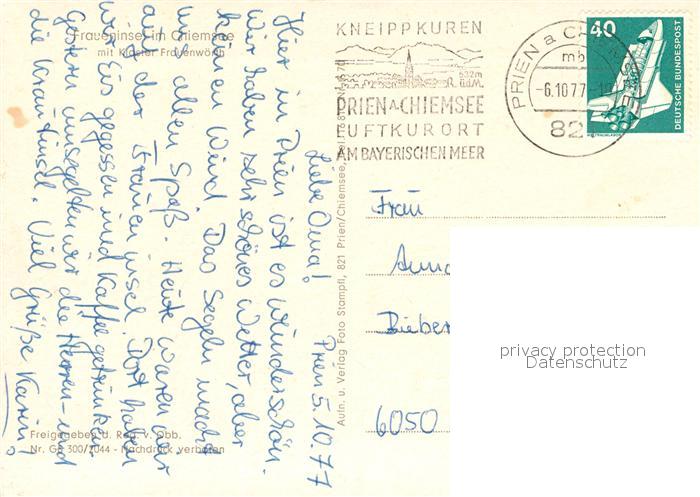 Fraueninsel im Chiemsee
mit Kloster Frauenwörth
Prien 5.10.77
Liebe Oma!
Hier in Prien ist es wunderschön.
Wir haben sehr schönes Wetter, aber
keinen Wind. Das Segeln macht
uns allen Spaß. Heute waren wir
auf der Fraueninsel. Dort haben
wir Eis gegessen und Kaffee getrunken.
Gestern umsegelten wir die Herren- und
die Krautinsel. Viel Grüße Karin!
Freigegeben d. Reg. v. Obb.
Nr. GS 300/7044 - Nachdruck verboten
Aufn. u. Verlag Foto Stampfl, 821 Prien/Chiemsee,
KNEIPPKUREN
532m
ü.d.M.
PRIEN A. CHIEMSEE
LUFTKURORT
AM BAYERISCHEN MEER
PRIEN a CHIEMSEE
mb
-6.10.77-
82
40
DEUTSCHE BUNDESPOST
Frau
Anna
Bieber
6050
privacy protection
Datenschutz